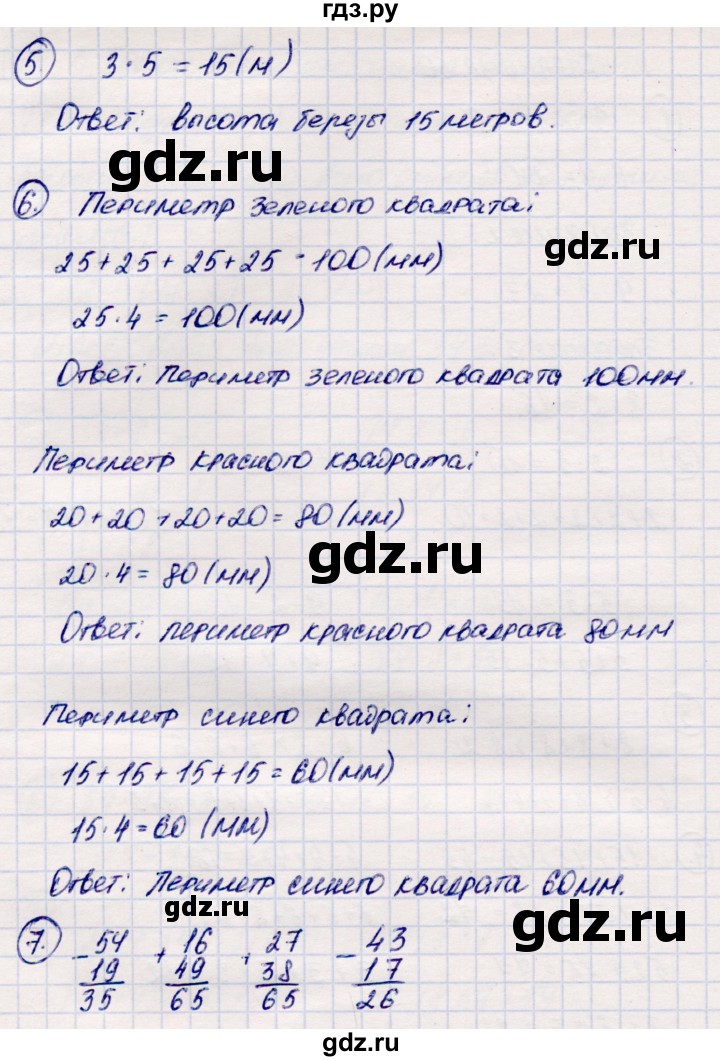 гдз.ру
5. 3·5=15(м)
Ответ: высота березы 15 метров.
gdz.ru
6. Периметр зеленого квадрата:
gdz.ru
25+25+25+25=100(мм)
25·4=100(мм)
Ответ: периметр зеленого квадрата 100мм.
Периметр красного квадрата:
20+20+20+20=80(мм)
gdz.ru
20·4=80(мм)
Ответ: периметр красного квадрата 80мм
Периметр синего квадрата:
15+15+15+15=60(мм)
gdz.ru
15·4=60(мм)
Ответ: Периметр синего квадрата 60мм.
gdz.ru
gdz.ru
7. -54 +16 +27 -43
19 49 38 17
35 65 65 26
gdz.ru